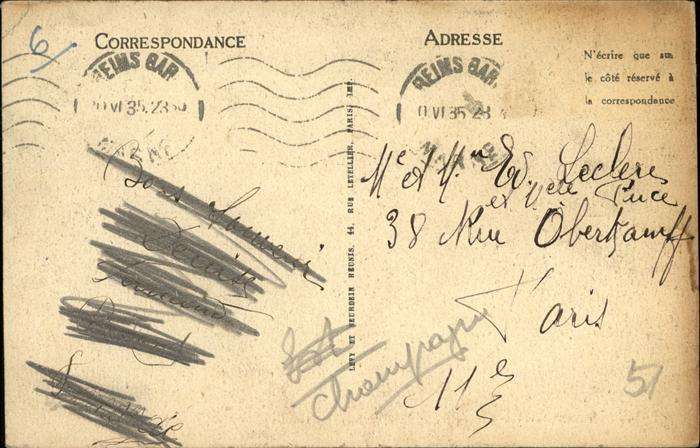 6
CORRESPONDANCE
ADRESSE
N'écrire que sur
le côté réservé à
la correspondance
REIMS GAR
10 VI 35.23
MARNE
REIMS GAR
10 VI 35.23
MARNE
LEVY ET NEURDEIN REUNIS, 44, RUE LETELLIER, PARIS, IMP.
Bons Souvenirs
Mr et Mme Ed. Leclerc
et Melle Puce
38 Rue Oberkampf
Paris
11e
Est
Champagne
51